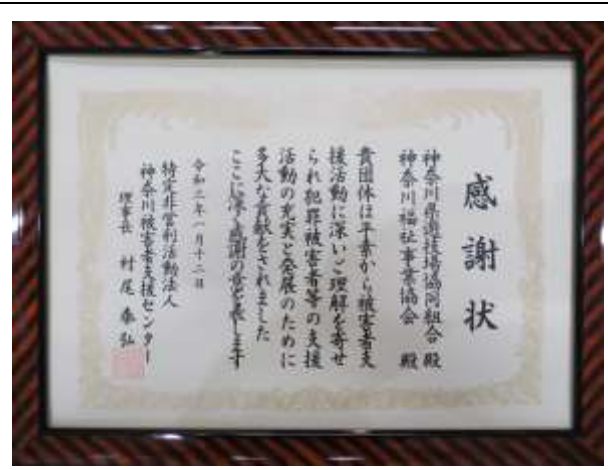 感謝状
神奈川県遊技場協同組合 殿
神奈川福祉事業協会 殿
貴団体は平素から被害者支
援活動に深いご理解を寄せ
られ犯罪被害者等の支援
活動の充実と発展のために
多大な貢献をされました
ここに深く感謝の意を表します
令和三年一月十二日
特定非営利活動法人
神奈川被害者支援センター
理事長 村尾 泰弘